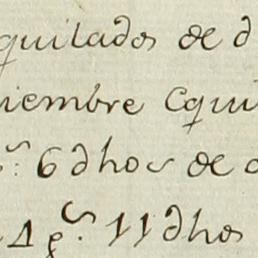 quilados de d
iembre Cqui
s: 6 dhos de d
1 8s. 11 dhos